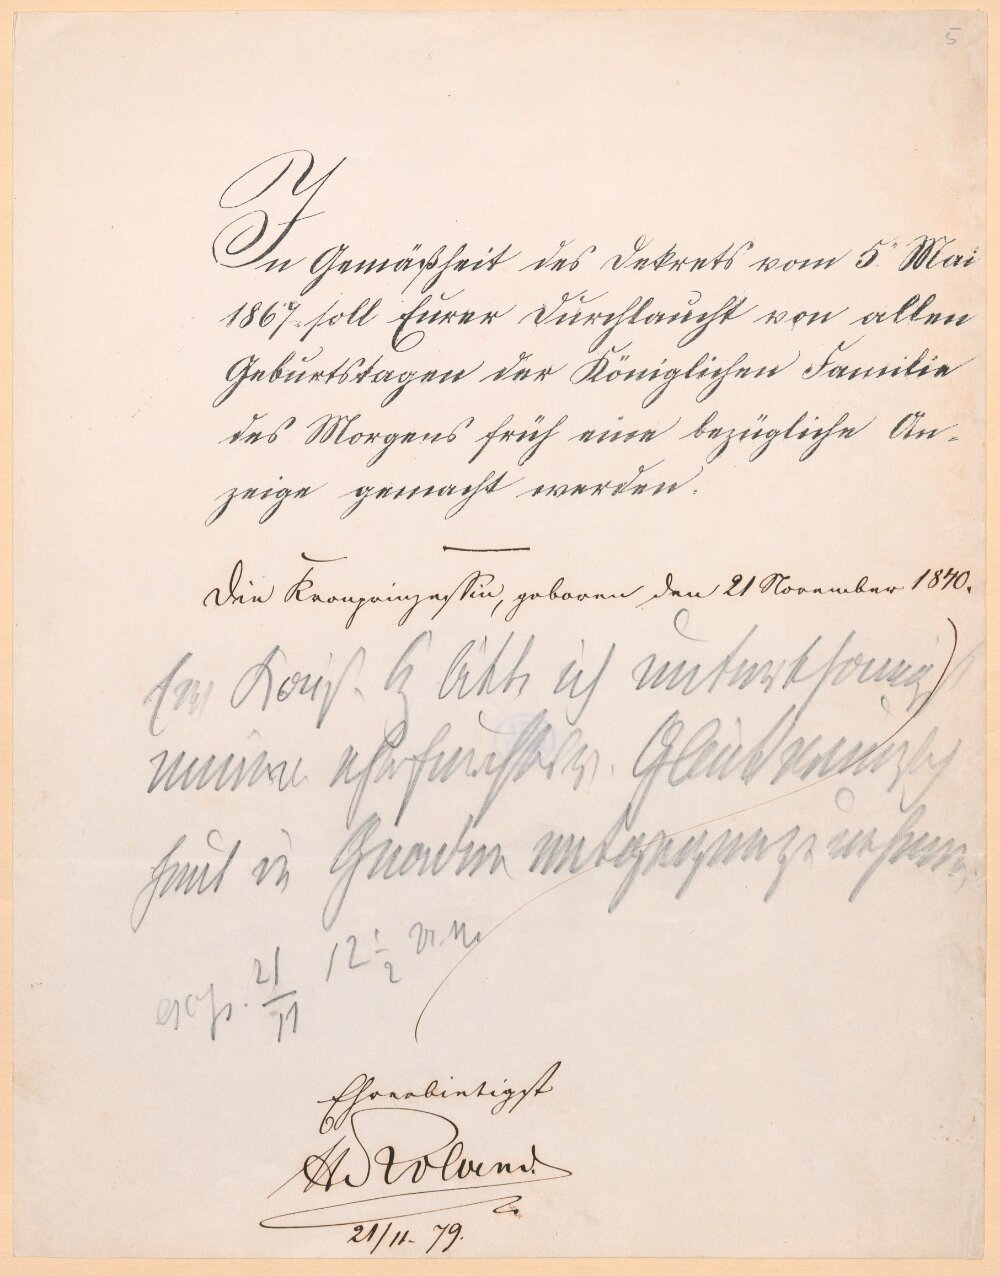 5
In Gemäßheit des Dekrets vom 5. Mai
1867. soll Eurer Durchlaucht von allen
Geburtstagen der Königlichen Familie
des Morgens früh eine bezügliche An-
zeige gemacht werden.
Die Kronprinzessin, geboren den 21 November 1840.
bitte ich unterthänigst
meine ehrfurchtsv. Glückwünsche
heut in Gnaden entgegenzunehmen
21/11 12 1/2
Ehrerbietigst
Roland
21/11. 79.